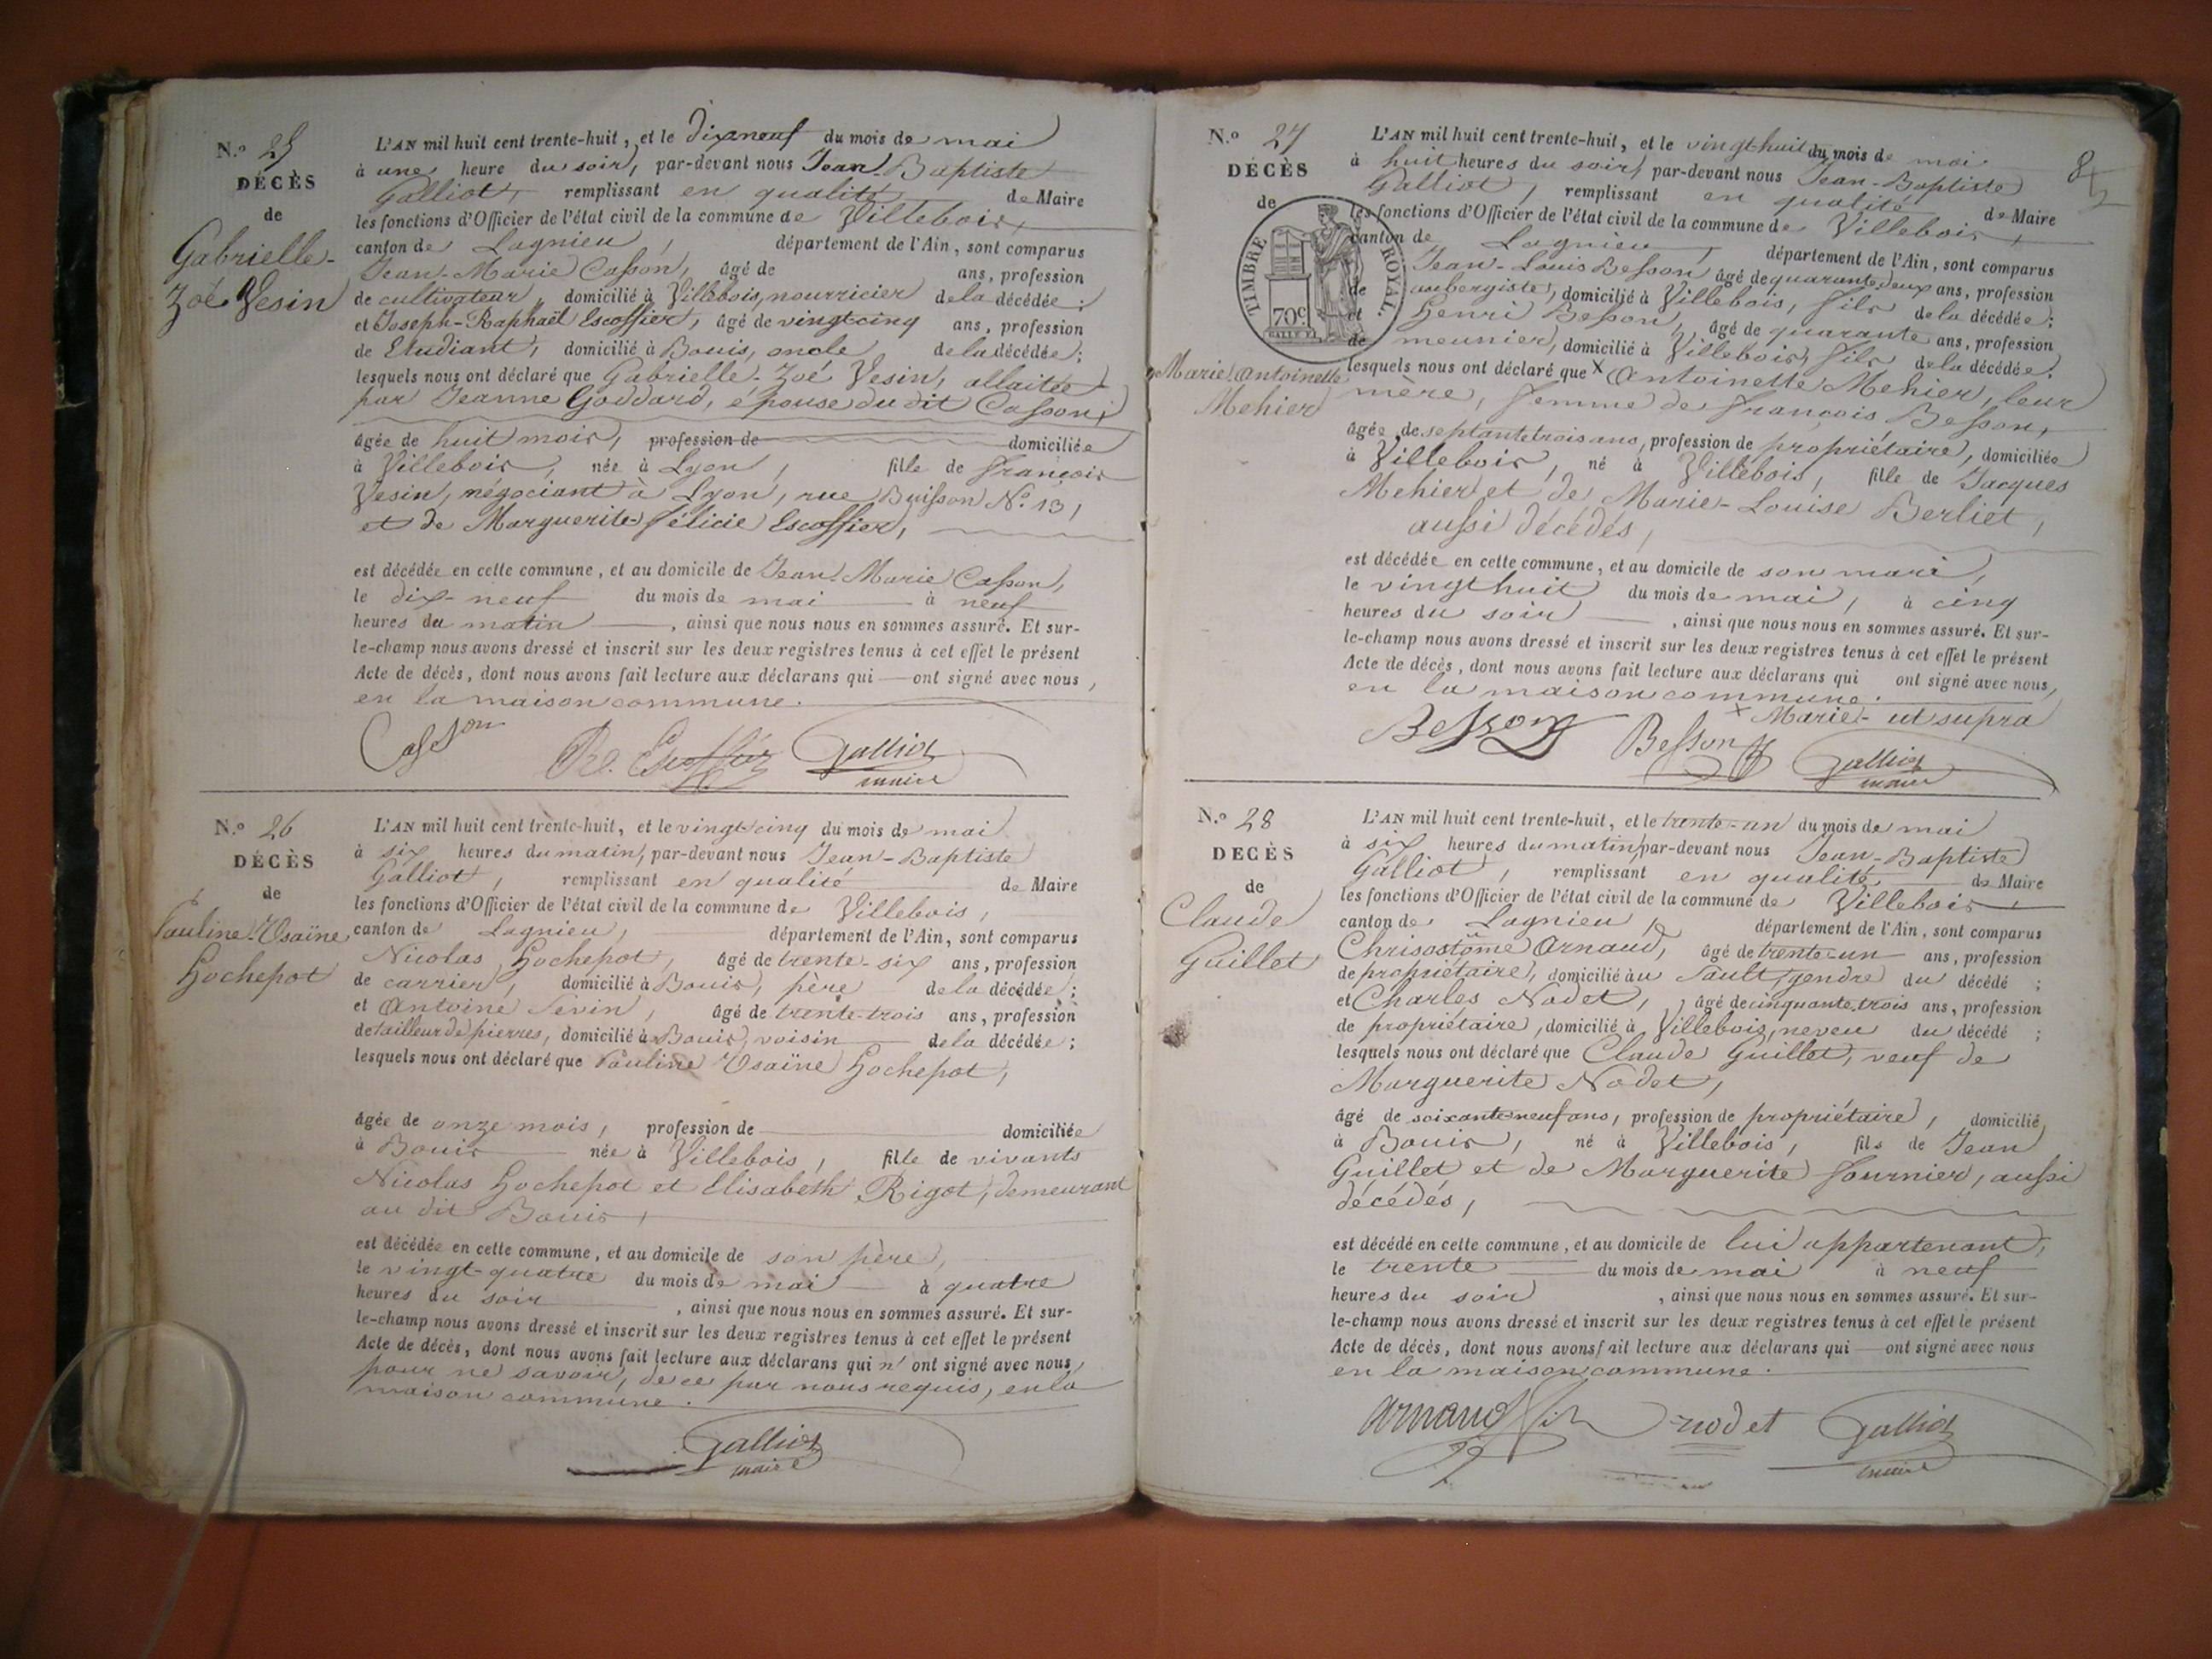 N.o 25
DÉCÈS
de
Gabrielle-
Zoé Vesin
L'AN mil huit cent trente-huit, et le dix neuf du mois de mai
à une heure du soir, par-devant nous Jean-Baptiste
Galliot, remplissant en qualité de Maire
les fonctions d'Officier de l'état civil de la commune de Villebois,
canton de Lagnieu, département de l'Ain, sont comparus
Jean-Marie Casson, âgé de ans, profession
de cultivateur, domicilié à Villebois, nourricier de la décédée;
et Joseph-Raphaël Escoffier, âgé de vingt cinq ans, profession
de Etudiant, domicilié à Bouis, oncle de la décédée;
lesquels nous ont déclaré que Gabrielle-Zoé Vesin, allaitée
par Jeanne Goddard, épouse du dit Casson,
âgée de huit mois, profession de domiciliée
à Villebois, née à Lyon, fille de françois
Vesin, négociant à Lyon, rue Buisson No. 13,
et de Marguerite-félicie Escoffier,
est décédée en cette commune, et au domicile de Jean-Marie Casson,
le dix-neuf du mois de mai à neuf
heures du matin, ainsi que nous nous en sommes assuré. Et sur-
le-champ nous avons dressé et inscrit sur les deux registres tenus à cet effet le présent
Acte de décès, dont nous avons fait lecture aux déclarans qui ont signé avec nous,
en la maison commune.
Casson Escoffier Galliot
maire
N.o 26
DÉCÈS
de
Pauline-Osaïne
Hochepot
L'AN mil huit cent trente-huit, et le vingt cinq du mois de mai
à six heures du matin, par-devant nous Jean-Baptiste
Galliot, remplissant en qualité de Maire
les fonctions d'Officier de l'état civil de la commune de Villebois,
canton de Lagnieu, département de l'Ain, sont comparus
Nicolas Hochepot, âgé de trente-six ans, profession
de carrier, domicilié à Bouis, père de la décédée;
et Antoine Sevin, âgé de trente-trois ans, profession
de tailleur de pierres, domicilié à Bouis, voisin de la décédée;
lesquels nous ont déclaré que Pauline Osaïne Hochepot,
âgée de onze mois, profession de domiciliée
à Bouis née à Villebois, fille de vivants
Nicolas Hochepot et Elisabeth Rigot, demeurant
au dit Bouis,
est décédée en cette commune, et au domicile de son père,
le vingt-quatre du mois de mai à quatre
heures du soir, ainsi que nous nous en sommes assuré. Et sur-
le-champ nous avons dressé et inscrit sur les deux registres tenus à cet effet le présent
Acte de décès, dont nous avons fait lecture aux déclarans qui n'ont signé avec nous,
pour ne savoir, de ce par nous requis, en la
maison commune.
Galliot
maire
N.o 27
DÉCÈS
de
TIMBRE ROYAL.
70c
Marie-Antoinette
Mehier
L'AN mil huit cent trente-huit, et le vingt-huit du mois de mai
à huit heures du soir, par-devant nous Jean-Baptiste
Galliot, remplissant en qualité de Maire
les fonctions d'Officier de l'état civil de la commune de Villebois,
canton de Lagnieu, département de l'Ain, sont comparus
Jean-Louis Besson âgé de quarante deux ans, profession
de aubergiste, domicilié à Villebois, fils de la décédée;
et Henri Besson, âgé de quarante ans, profession
de meunier, domicilié à Villebois, fils de la décédée.
lesquels nous ont déclaré que x Antoinette Mehier, leur
mère, femme de françois Besson,
âgée de septante trois ans, profession de propriétaire, domiciliée
à Villebois, né à Villebois, fille de Jacques
Mehier et de Marie-Louise Berliet,
aussi décédés,
est décédée en cette commune, et au domicile de son mari,
le vingt huit du mois de mai, à cinq
heures du soir, ainsi que nous nous en sommes assuré. Et sur-
le-champ nous avons dressé et inscrit sur les deux registres tenus à cet effet le présent
Acte de décès, dont nous avons fait lecture aux déclarans qui ont signé avec nous,
en la maison commune.
x Marie- ut supra
Besson Besson Galliot
maire
N.o 28
DECÈS
de
Claude
Guillet
L'AN mil huit cent trente-huit, et le trente-un du mois de mai
à six heures du matin, par-devant nous Jean-Baptiste
Galliot, remplissant en qualité de Maire
les fonctions d'Officier de l'état civil de la commune de Villebois,
canton de Lagnieu, département de l'Ain, sont comparus
Chrisostôme Arnaud, âgé de trente-un ans, profession
de propriétaire, domicilié au Sault, gendre du décédé;
et Charles Nodet, âgé de cinquante trois ans, profession
de propriétaire, domicilié à Villebois, neveu du décédé;
lesquels nous ont déclaré que Claude Guillet, veuf de
Marguerite Nodet,
âgé de soixante neuf ans, profession de propriétaire, domicilié
à Bouis, né à Villebois, fils de Jean
Guillet et de Marguerite fournier, aussi
décédés,
est décédé en cette commune, et au domicile de lui appartenant,
le trente du mois de mai à neuf
heures du soir, ainsi que nous nous en sommes assuré. Et sur-
le-champ nous avons dressé et inscrit sur les deux registres tenus à cet effet le présent
Acte de décès, dont nous avons fait lecture aux déclarans qui ont signé avec nous
en la maison commune.
arnaud nodet Galliot
maire